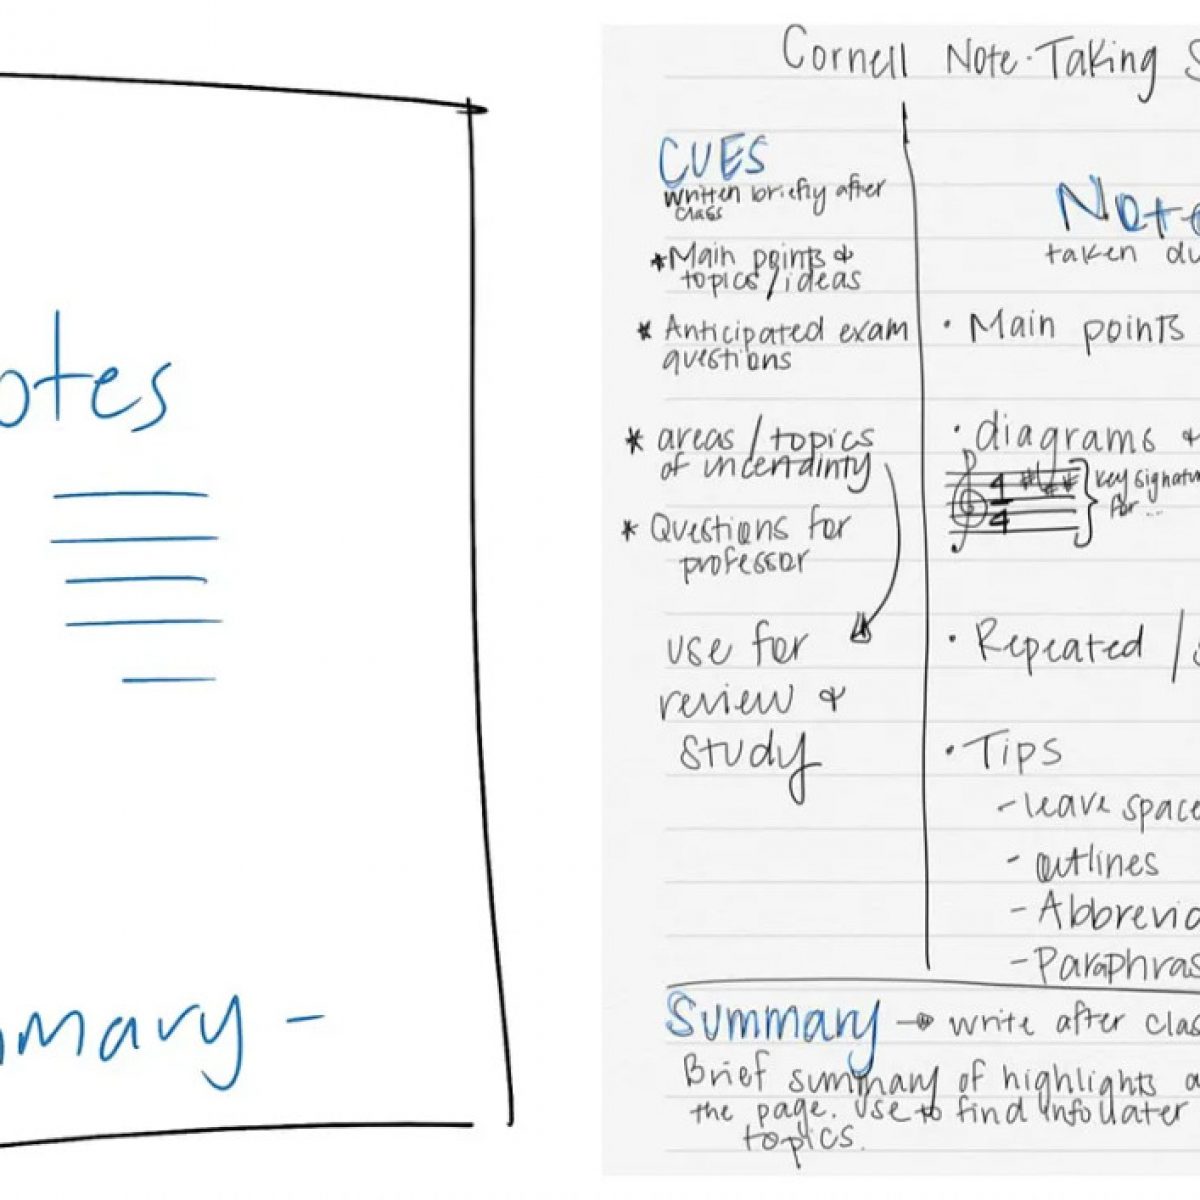 otes
mmary -
Cornell Note-Taking S
CUES
written briefly after
class
*Main points &
topics/ideas
* Anticipated exam
questions
* areas/topics
of uncertainty
* Questions for
professor
use for
review &
study
Note
taken du
• Main points
• diagrams &
4
4
key signatur
for...
• Repeated /
• Tips
- leave space
- outlines
- Abbrevia
- Paraphras
Summary → write after clas
Brief summary of highlights a
the page. Use to find info later
topics.